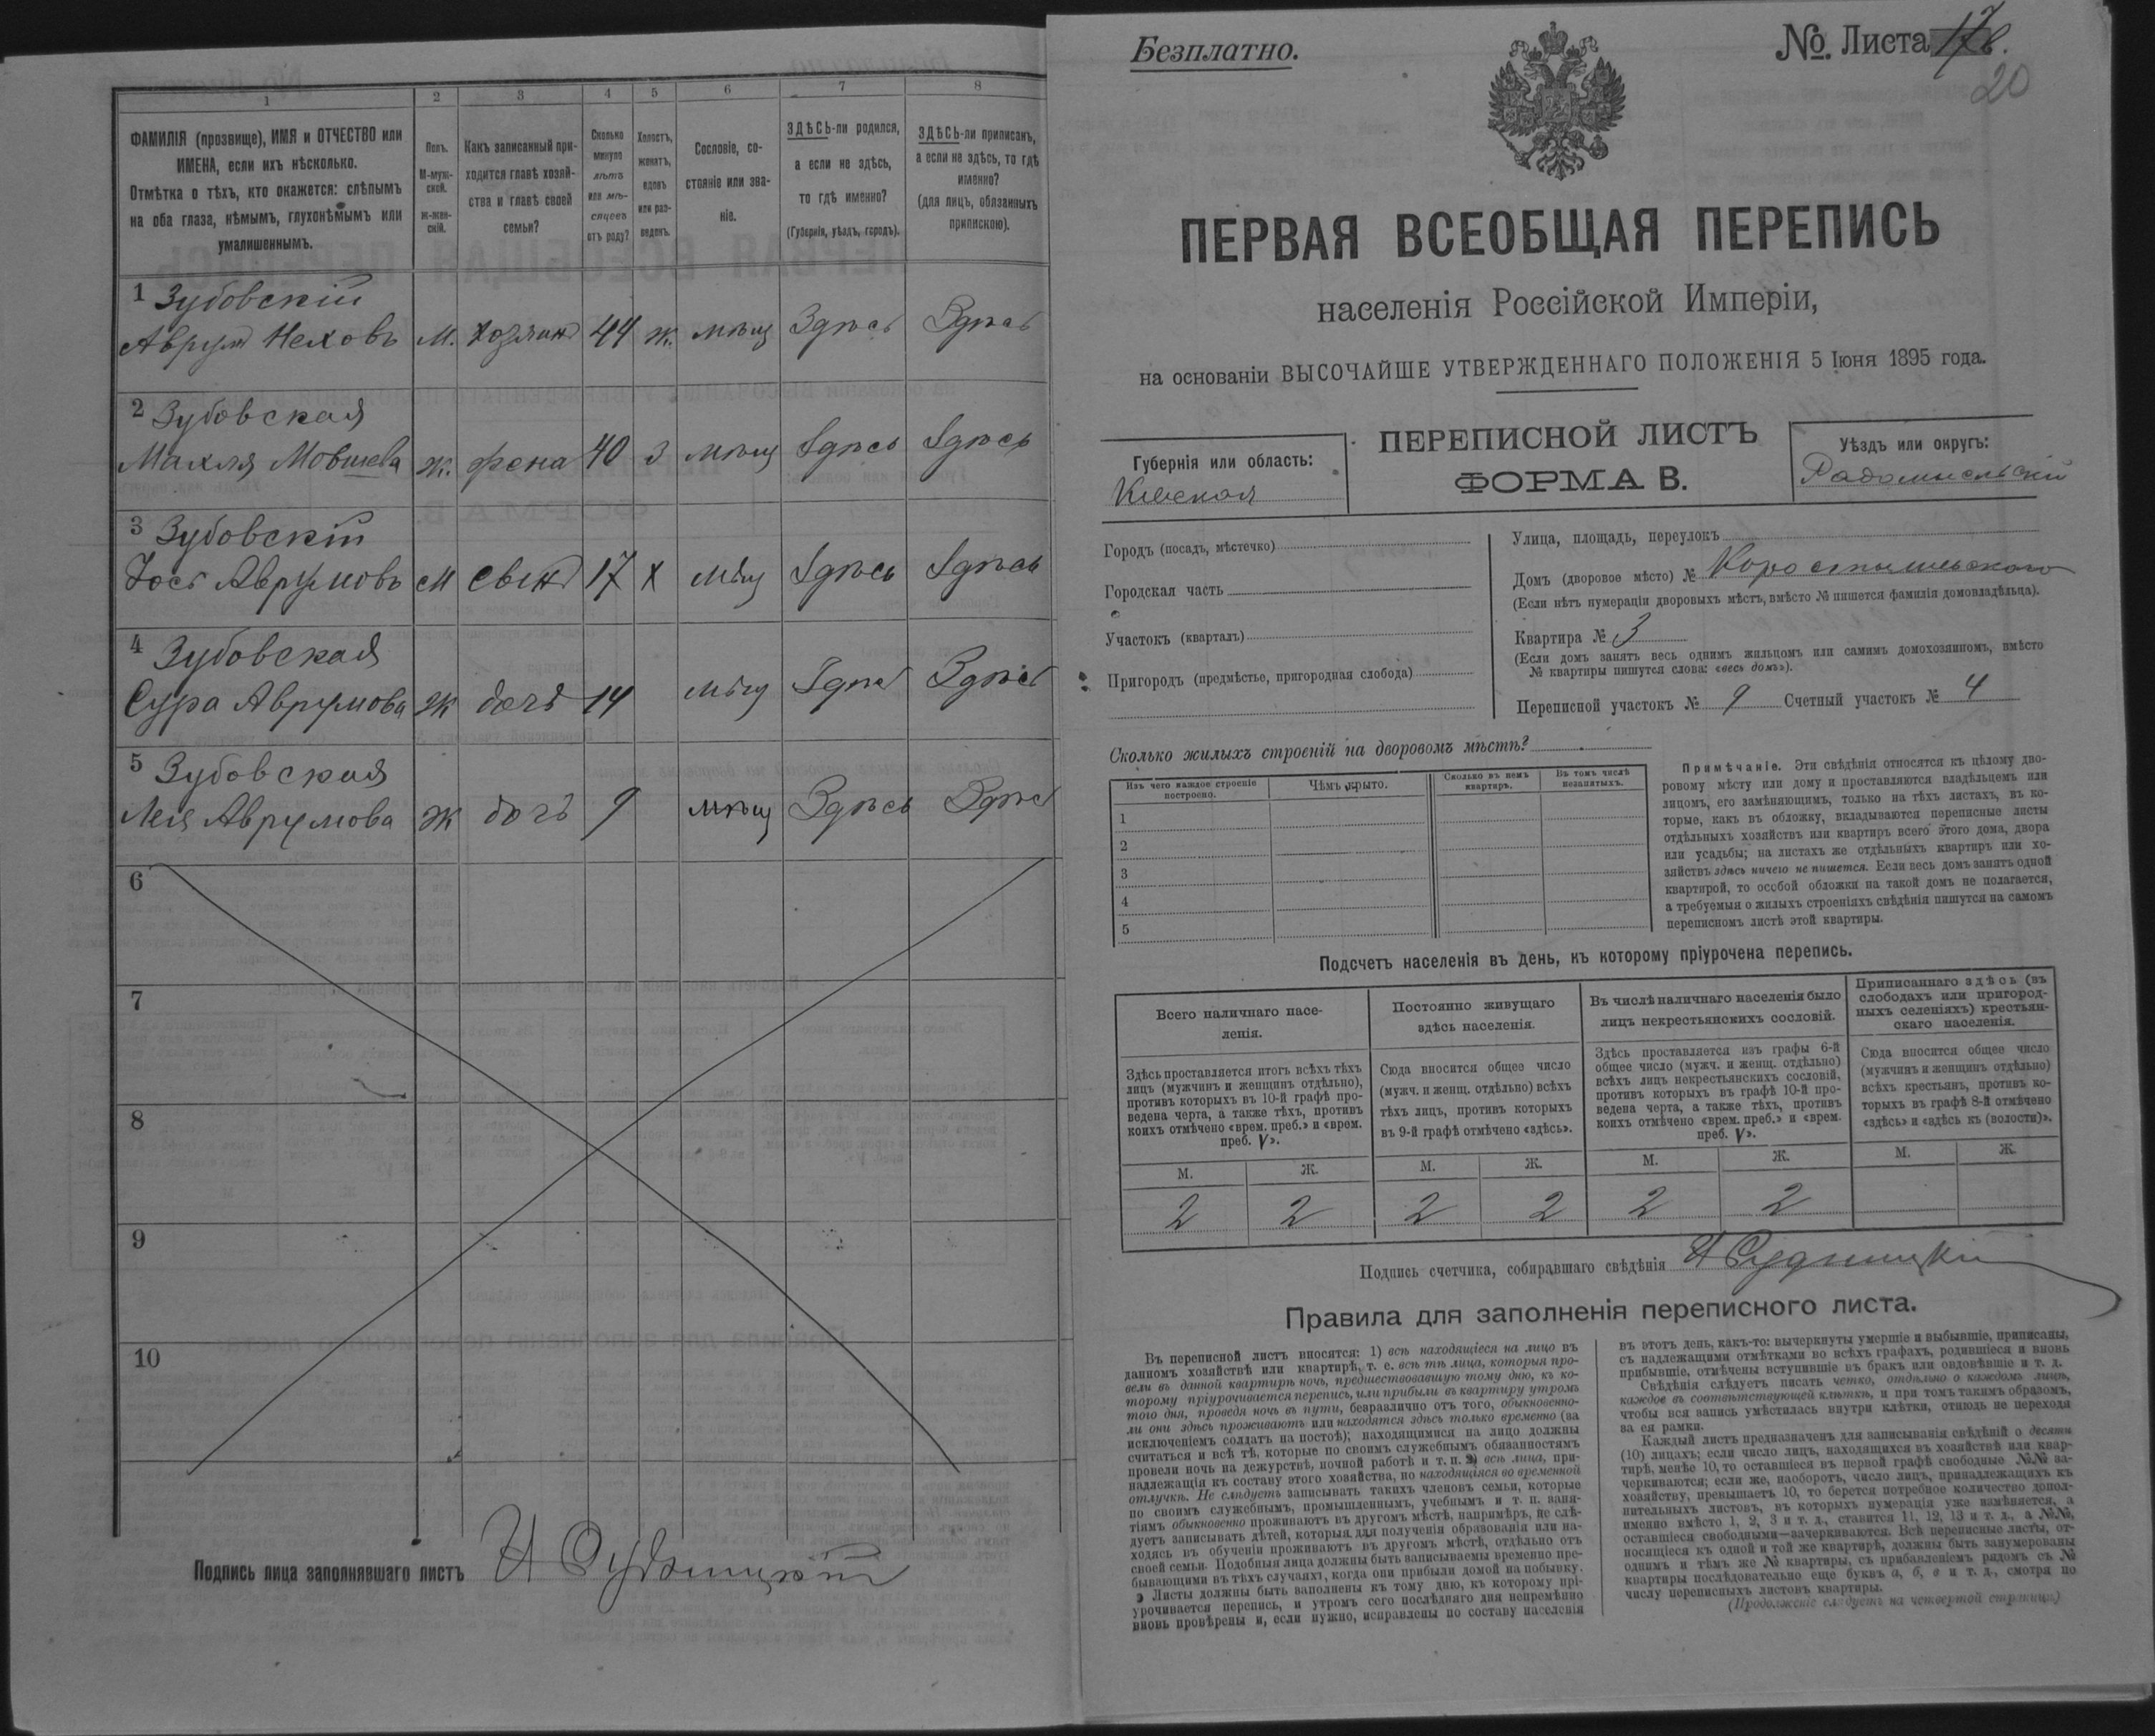 1 2 3 4 5 6 7 8
ФАМИЛІЯ (прозвище), ИМЯ и ОТЧЕСТВО или
ИМЕНА, если ихъ нѣсколько.
Отмѣтка о тѣхъ, кто окажется: слѣпымъ
на оба глаза, нѣмымъ, глухонѣмымъ или
умалишеннымъ.
Полъ.
М-муж-
ской.
ж-жен-
скій.
Какъ записанный при-
ходится главѣ хозяй-
ства и главѣ своей
семьи?
Сколько
минуло
лѣтъ
или мѣ-
сяцевъ
отъ роду?
Холостъ,
женатъ,
вдовъ
или раз-
веденъ.
Сословіе, со-
стояніе или зва-
ніе.
ЗДѢСЬ-ли родился,
а если не здѣсь,
то гдѣ именно?
(Губернія, уѣздъ, городъ).
ЗДѢСЬ-ли приписанъ,
а если не здѣсь, то гдѣ
именно?
(для лицъ, обязанныхъ
припискою).
1 Зубовскій
Аврумъ М. хозяинъ 44 ж. мѣщ Здѣсь Здѣсь
2 Зубовская
Махля Мовшева ж. жена 40 З мѣщ Здѣсь Здѣсь
3 Зубовскій
Іось Аврумовъ М сынъ 17 Х мѣщ Здѣсь Здѣсь
4 Зубовская
Сура Аврумова Ж дочь 14 мѣщ Здѣсь Здѣсь
5 Зубовская
Лея Аврумова Ж дочь 9 мѣщ Здѣсь Здѣсь
6
7
8
9
10
Подпись лица заполнявшаго листъ
Безплатно.
№ Листа
20
ПЕРВАЯ ВСЕОБЩАЯ ПЕРЕПИСЬ
населенія Россійской Имперіи,
на основаніи ВЫСОЧАЙШЕ УТВЕРЖДЕННАГО ПОЛОЖЕНІЯ 5 Іюня 1895 года.
Губернія или область:
Кіевская
ПЕРЕПИСНОЙ ЛИСТЪ
ФОРМА В.
Уѣздъ или округъ:
Радомысльскій
Городъ (посадъ, мѣстечко)
Городская часть
Участокъ (кварталъ)
Пригородъ (предмѣстье, пригородная слобода)
Улица, площадь, переулокъ
Домъ (дворовое мѣсто) № Коростышевскаго
(Если нѣтъ нумераціи дворовыхъ мѣстъ, вмѣсто № пишется фамилія домовладѣльца).
Квартира № 3
(Если домъ занятъ весь однимъ жильцомъ или самимъ домохозяиномъ, вмѣсто
№ квартиры пишутся слова: «весь домъ»).
Переписной участокъ № 9 Счетный участокъ № 4
Сколько жилыхъ строеній на дворовомъ мѣстѣ?
Изъ чего каждое строеніе
построено.
Чѣмъ крыто.
Сколько въ немъ
квартиръ.
Въ томъ числѣ
незанятыхъ.
1
2
3
4
5
Примѣчаніе. Эти свѣдѣнія относятся къ цѣлому дво-
ровому мѣсту или дому и проставляются владѣльцемъ или
лицомъ, его замѣняющимъ, только на тѣхъ листахъ, въ ко-
торые, какъ въ обложку, вкладываются переписные листы
отдѣльныхъ хозяйствъ или квартиръ всего этого дома, двора
или усадьбы; на листахъ же отдѣльныхъ квартиръ или хо-
зяйствъ здѣсь ничего не пишется. Если весь домъ занятъ одной
квартирой, то особой обложки на такой домъ не полагается,
а требуемыя о жилыхъ строеніяхъ свѣдѣнія пишутся на самомъ
переписномъ листѣ этой квартиры.
Подсчетъ населенія въ день, къ которому пріурочена перепись.
Всего наличнаго насе-
ленія.
Здѣсь проставляется итогъ всѣхъ тѣхъ
лицъ (мужчинъ и женщинъ отдѣльно),
противъ которыхъ въ 10-й графѣ про-
ведена черта, а также тѣхъ, противъ
коихъ отмѣчено «врем. преб.» и «врем.
преб. V».
Постоянно живущаго
здѣсь населенія.
Сюда вносится общее число
(мужч. и женщ. отдѣльно) всѣхъ
тѣхъ лицъ, противъ которыхъ
въ 9-й графѣ отмѣчено «здѣсь».
Въ числѣ наличнаго населенія было
лицъ некрестьянскихъ сословій.
Здѣсь проставляется изъ графы 6-й
общее число (мужч. и женщ. отдѣльно)
всѣхъ лицъ некрестьянскихъ сословій,
противъ которыхъ въ графѣ 10-й про-
ведена черта, а также тѣхъ, противъ
коихъ отмѣчено «врем. преб.» и «врем.
преб. V».
Приписаннаго здѣсь (въ
слободахъ или пригород-
ныхъ селеніяхъ) крестьян-
скаго населенія.
Сюда вносится общее число
(мужчинъ и женщинъ отдѣльно)
всѣхъ крестьянъ, противъ ко-
торыхъ въ графѣ 8-й отмѣчено
«здѣсь» и «здѣсь къ (волости)».
М. Ж. М. Ж. М. Ж. М. Ж.
2 2 2 2 2 2
Подпись счетчика, собиравшаго свѣдѣнія
Правила для заполненія переписного листа.
Въ переписной листъ вносятся: 1) всѣ находящіеся на лицо въ
данномъ хозяйствѣ или квартирѣ, т. е. всѣ тѣ лица, которыя про-
вели въ данной квартирѣ ночь, предшествовавшую тому дню, къ ко-
торому пріурочивается перепись, или прибыли въ квартиру утромъ
того дня, проведя ночь въ пути, безразлично отъ того, обыкновенно-
ли они здѣсь проживаютъ или находятся здѣсь только временно (за
исключеніемъ солдатъ на постоѣ); находящимися на лицо должны
считаться и всѣ тѣ, которые по своимъ служебнымъ обязанностямъ
провели ночь на дежурствѣ, ночной работѣ и т. п. 2) всѣ лица, при-
надлежащія къ составу этого хозяйства, но находящіяся во временной
отлучкѣ. Не слѣдуетъ записывать такихъ членовъ семьи, которые
по своимъ служебнымъ, промышленнымъ, учебнымъ и т. п. заня-
тіямъ обыкновенно проживаютъ въ другомъ мѣстѣ, напримѣръ, не слѣ-
дуетъ записывать дѣтей, которыя для полученія образованія или на-
ходясь въ обученіи проживаютъ въ другомъ мѣстѣ, отдѣльно отъ
своей семьи. Подобныя лица должны быть записываемы временно пре-
бывающими въ тѣхъ случаяхъ, когда они прибыли домой на побывку.
Листы должны быть заполнены къ тому дню, къ которому прі-
урочивается перепись, и утромъ сего послѣдняго дня непремѣнно
вновь провѣрены и, если нужно, исправлены по составу населенія
въ этотъ день, какъ-то: вычеркнуты умершіе и выбывшіе, приписаны,
съ надлежащими отмѣтками во всѣхъ графахъ, родившіеся и вновь
прибывшіе, отмѣчены вступившіе въ бракъ или овдовѣвшіе и т. д.
Свѣдѣнія слѣдуетъ писать четко, отдѣльно о каждомъ лицѣ,
каждое въ соотвѣтствующей клѣткѣ, и при томъ такимъ образомъ,
чтобы вся запись умѣстилась внутри клѣтки, отнюдь не переходя
за ея рамки.
Каждый листъ предназначенъ для записыванія свѣдѣній о десяти
(10) лицахъ; если число лицъ, находящихся въ хозяйствѣ или квар-
тирѣ, менѣе 10, то оставшіеся въ первой графѣ свободные №№ за-
черкиваются; если же, наоборотъ, число лицъ, принадлежащихъ къ
хозяйству, превышаетъ 10, то берется потребное количество допол-
нительныхъ листовъ, въ которыхъ нумерація уже измѣняется, а
именно вмѣсто 1, 2, 3 и т. д., ставится 11, 12, 13 и т. д., а №№,
оставшіеся свободными—зачеркиваются. Всѣ переписные листы, от-
носящіеся къ одной и той же квартирѣ, должны быть занумерованы
однимъ и тѣмъ же № квартиры, съ прибавленіемъ рядомъ съ №
квартиры послѣдовательно еще буквъ а, б, в и т. д., смотря по
числу переписныхъ листовъ квартиры.
(Продолженіе слѣдуетъ на четвертой страницѣ)